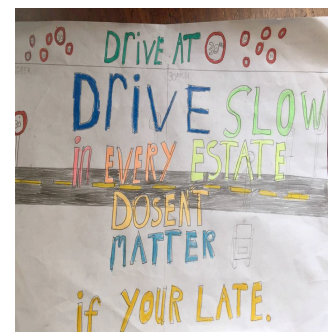 DRIVE AT
DRIVE SLOW
in EVERY ESTATE
DOSENT
MATTER
if YOUR LATE.